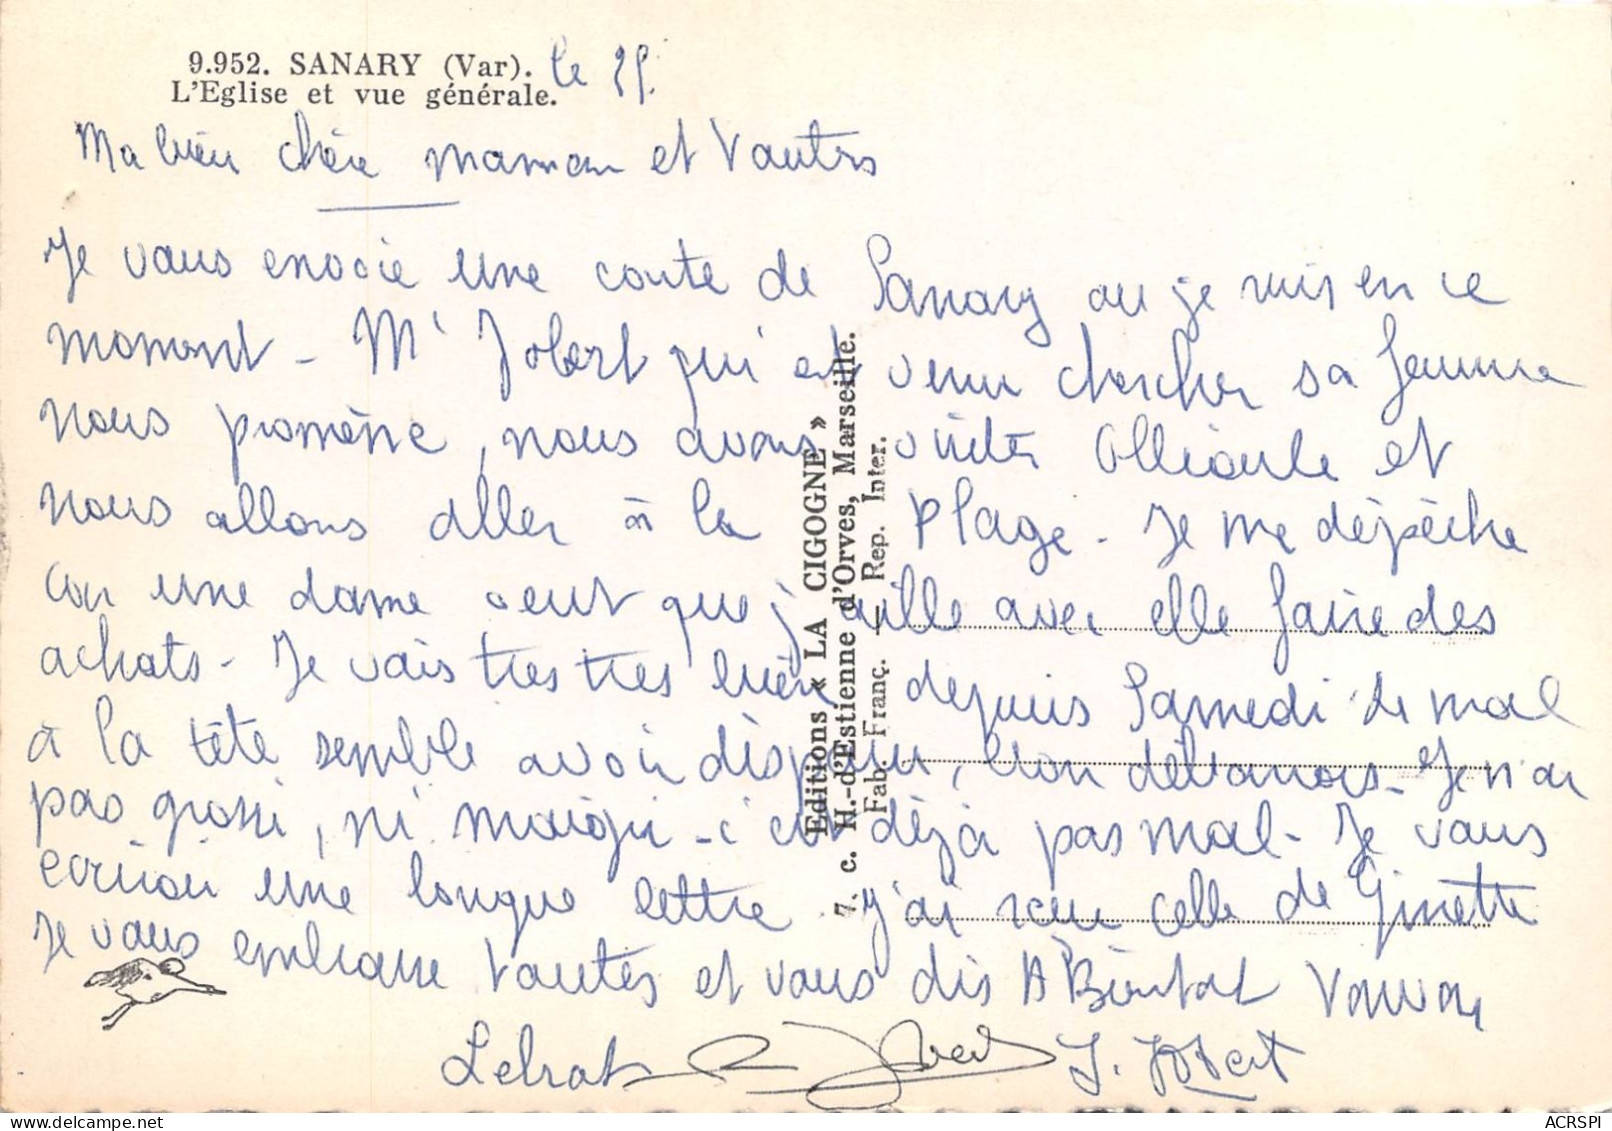 9.952. SANARY (Var).
L'Eglise et vue générale.
le 25.
Ma bien chère maman et Vautes
Je vous envoie une carte de Sanary ou je suis en ce
moment - Mr Jobert qui est venu chercher sa femme
nous promène, nous avons visité Ollioule et
nous allons aller à la Plage - Je me dépèche
car une dame veut que j'aille avec elle faire des
achats - Je vais tres tres bien depuis Samedi le mal
à la tête semble avoir disparu, bon débarras - Je n'ai
pas grossi, ni maigri - c'est déjà pas mal - Je vous
ecrirai une longue lettre j'ai reçu celle de Ginette
Je vous embrasse toutes et vous dis A Bientot
Lebrat
J. Jobert
Editions « LA CIGOGNE »
7. c. H.-d'Estienne d'Orves, Marseille.
Fab. Franç. - Rep. Inter.
ACRSPI